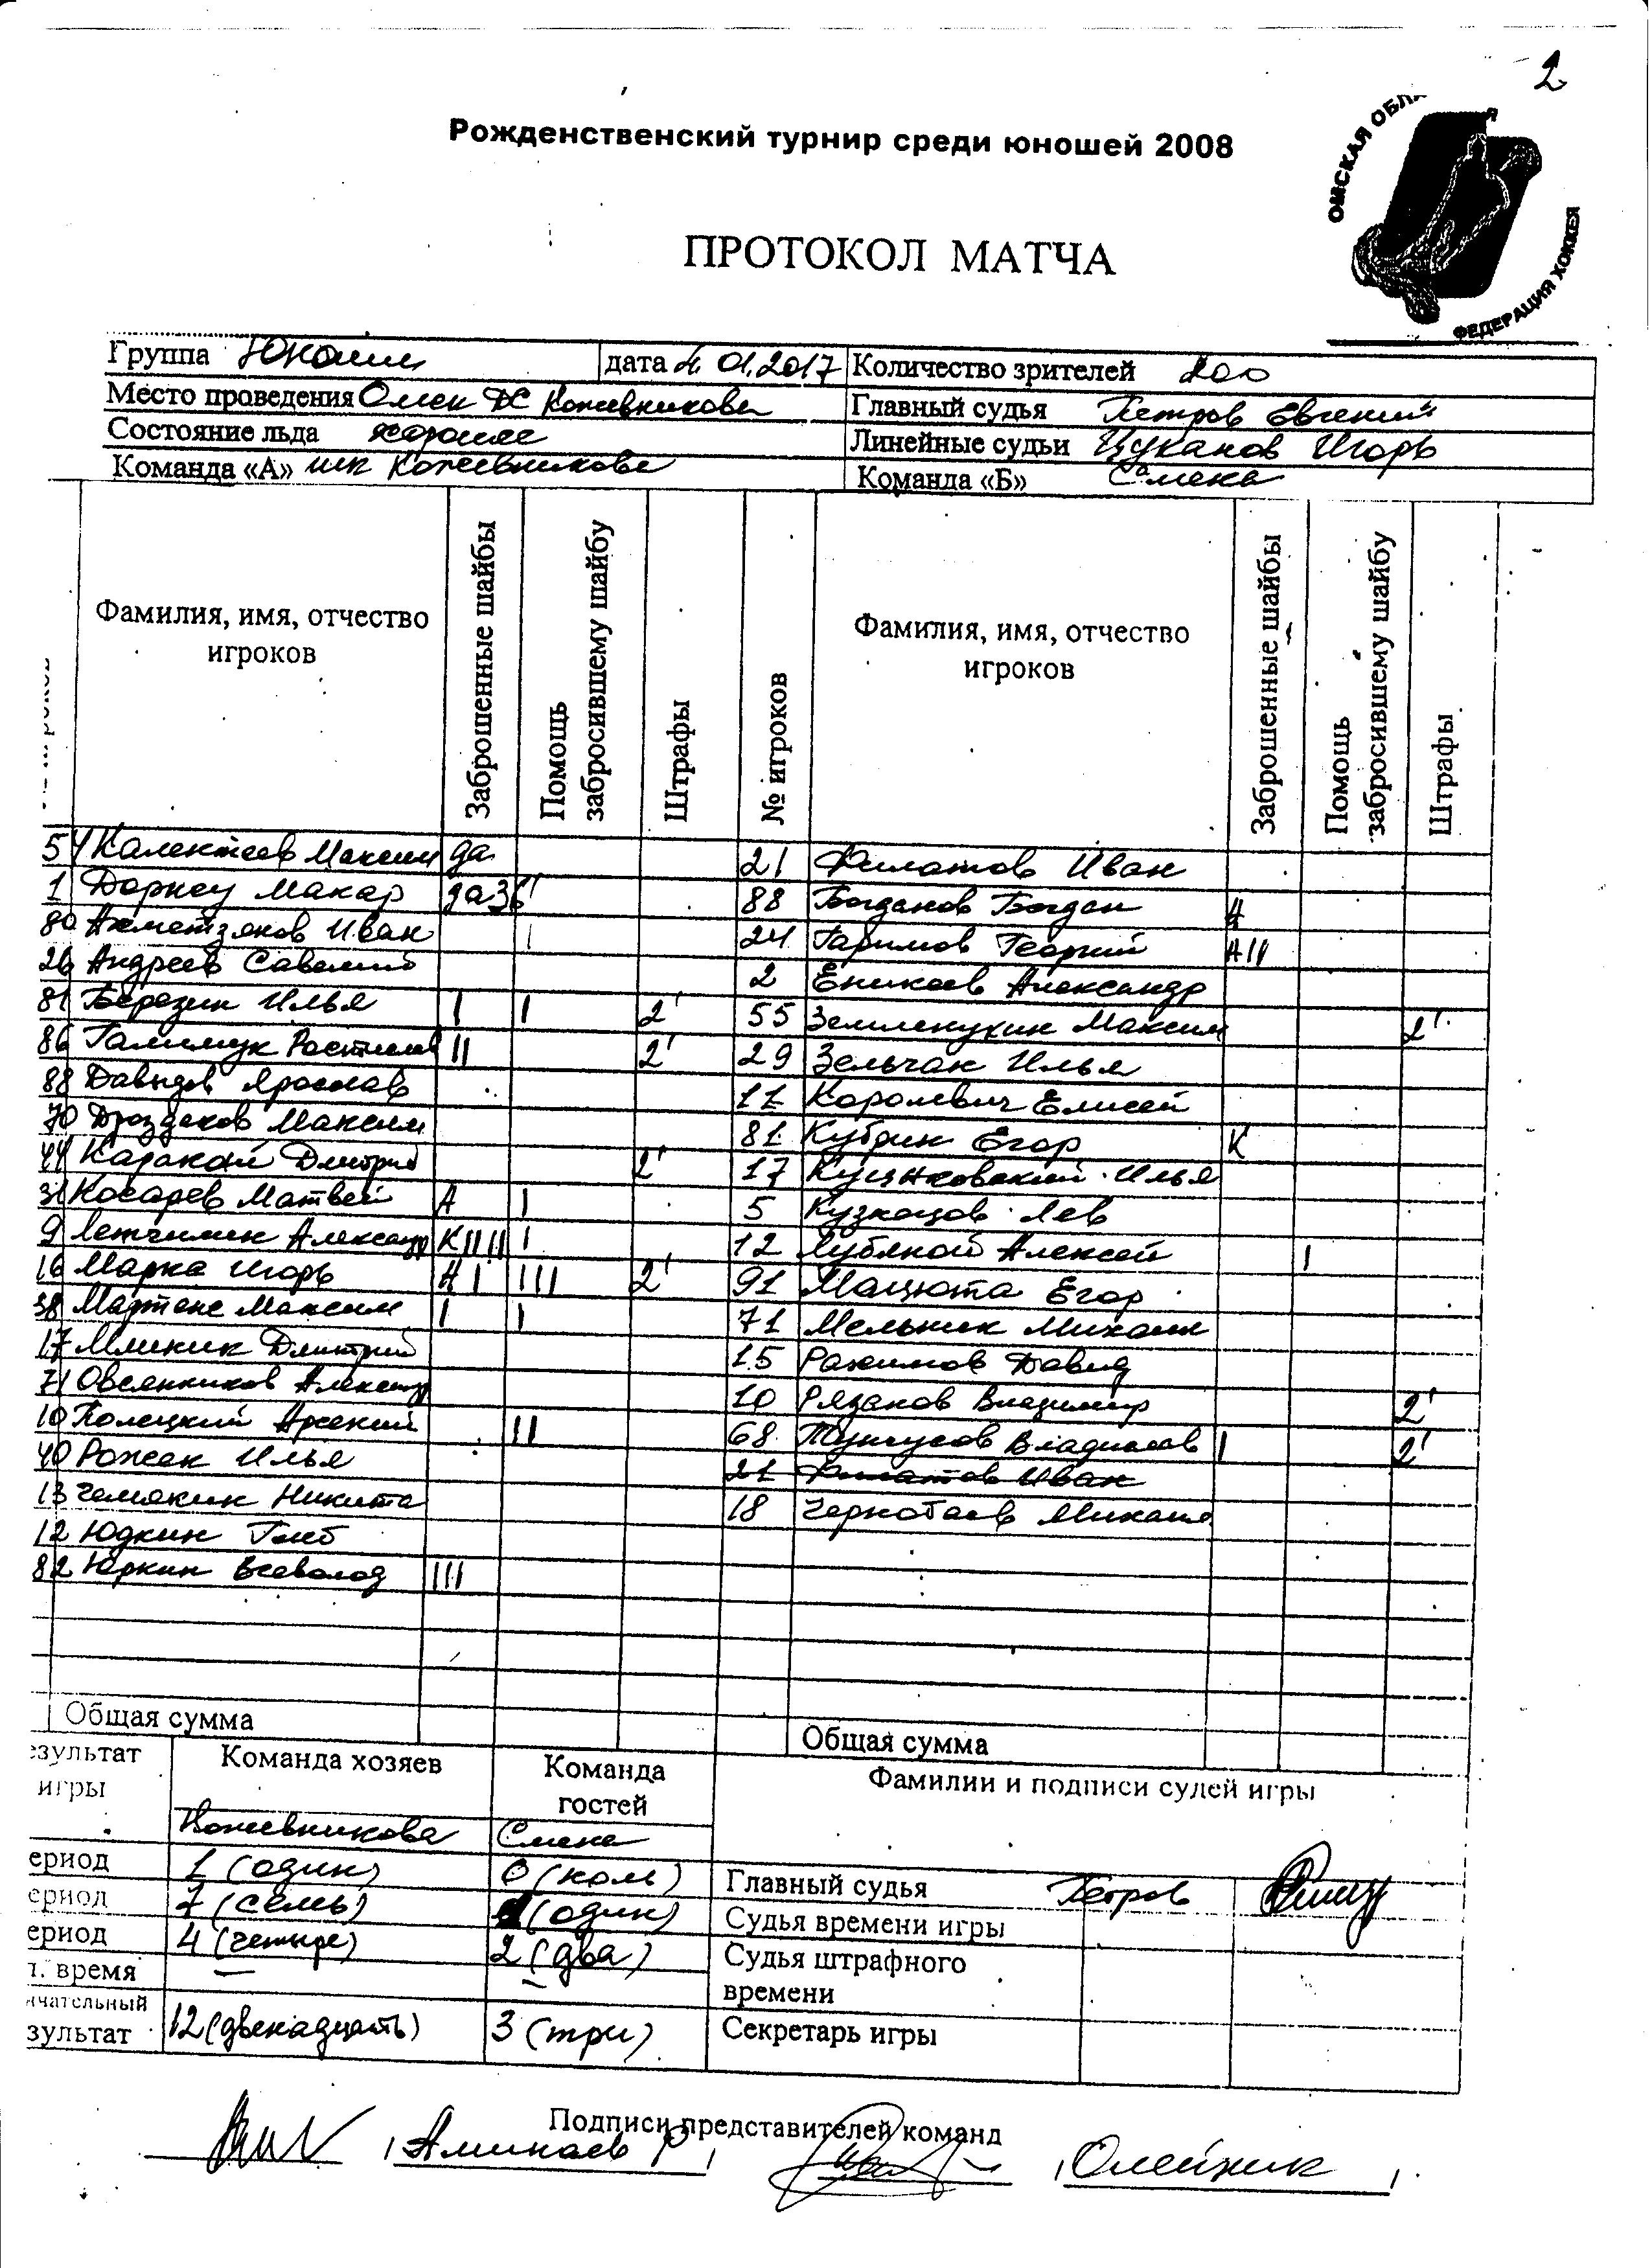 2
Рожденственский турнир среди юношей 2008
ОМСКАЯ ОБЛА
ФЕДЕРАЦИЯ ХОККЕЯ
ПРОТОКОЛ МАТЧА
Группа Юноши дата 4.01.2017 Количество зрителей 200
Место проведения Омск ДС Кожевникова Главный судья Петров Евгений
Состояние льда хорошее Линейные судьи Цуканов Игорь
Команда «А» шк Кожевникова Команда «Б» Смена
Фамилия, имя, отчество игроков Заброшенные шайбы Помощь забросившему шайбу Штрафы № игроков Фамилия, имя, отчество игроков Заброшенные шайбы Помощь забросившему шайбу Штрафы
54 Калентеев Максим да 21 Филатов Иван
1 Дорноу Макар да 36' 88 Богданов Богдан А
80 Ахметзянов Иван I 24 Гаримов Георгий А II
26 Андреев Савелий 2 Еникеев Александр
81 Березин Илья I I 2' 55 Землянухин Максим 2'
86 Галимук Ростислав II 2' 29 Зельчан Илья
88 Давыдов Ярослав 11 Королевич Елисей
70 Дроздков Максим 81 Кубрин Егор К
44 Каракай Дмитрий 2' 17 Илья
31 Косарев Матвей А I 5 Кузнецов Лев
9 Летчимин Александр К IIII I 12 Лубяной Алексей I
16 Марка Игорь А I III 2' 91 Мацюта Егор
38 Мартенс Максим I I 71 Мельник Михаил
17 Млиник Дмитрий 15 Рахимов Давид
71 Овсянников Александр 10 Рязанов Владимир 2'
10 Полецкий Арсений II 68 Тунгусов Владислав I 2'
40 Рожек Илья 21 Филатов Иван
13 Чемякин Никита 18 Чернобаев Михаил
12 Юдкин Глеб
82 Юркин Всеволод III
Общая сумма Общая сумма
езультат игры Команда хозяев Команда гостей Фамилии и подписи судей игры
Кожевникова Смена
ериод 1 (один) 0 (ноль) Главный судья Петров
ериод 7 (семь) (один) Судья времени игры
ериод 4 (четыре) 2 (два) Судья штрафного времени
п. время — —
нчательный зультат 12 (двенадцать) 3 (три) Секретарь игры
Подписи представителей команд
Аминаев Р Олейник